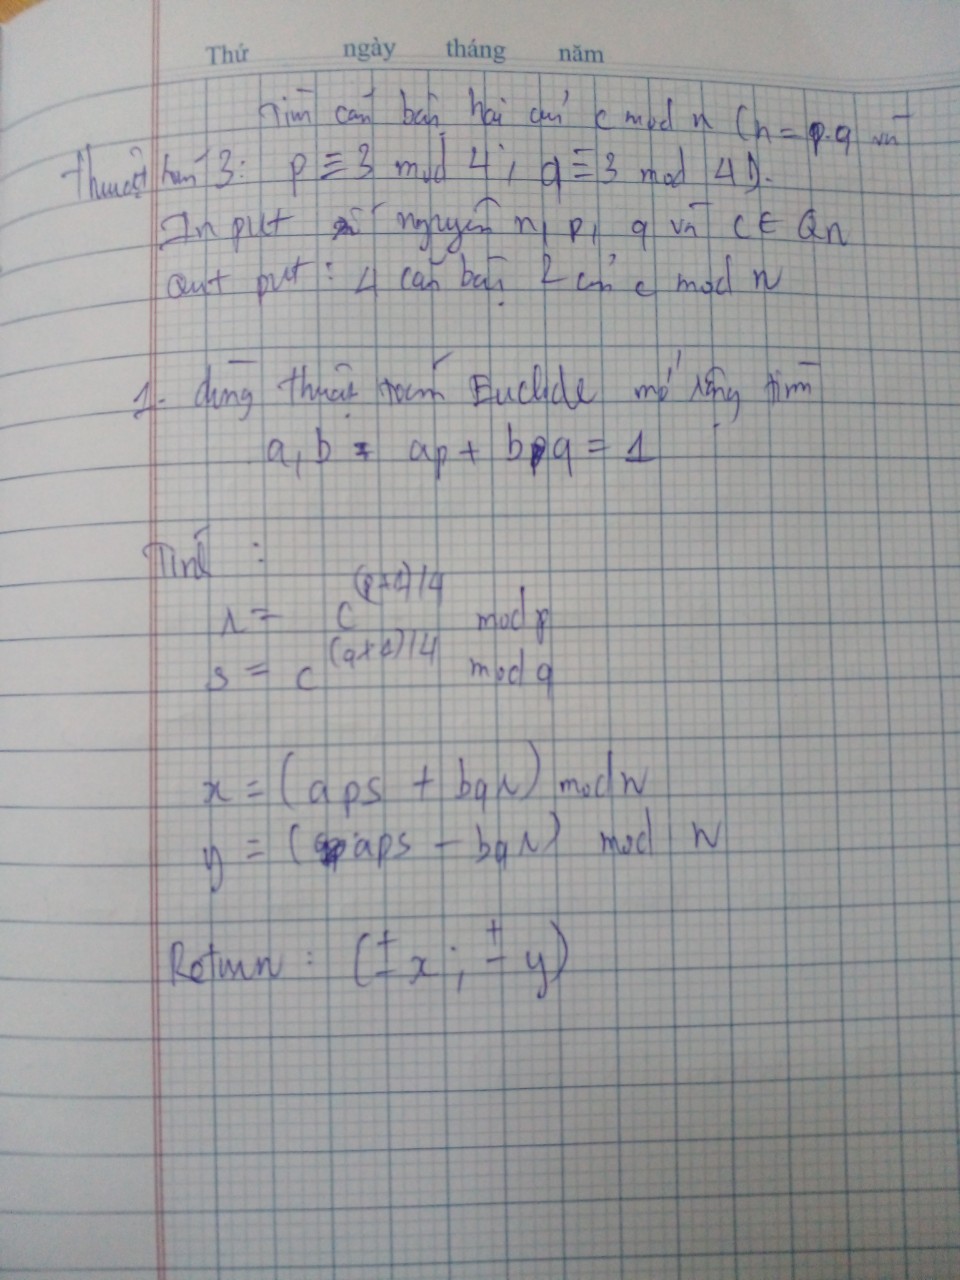 Thứ ngày tháng năm
Tìm căn bậc hai của c mod n (n = p.q và
Thuật toán 3: p ≡ 3 mod 4; q ≡ 3 mod 4).
Input số nguyên n, p, q và c ∈ Qn
Output: 4 căn bậc 2 của c mod n
1. dùng thuật toán Euclide mở rộng tìm
a, b : ap + bq = 1
Tính :
r = c^(p+1)/4 mod p
s = c^(q+1)/4 mod q
x = (aps + bqr) mod n
y = (aps - bqr) mod n
Return : (± x ; ± y)